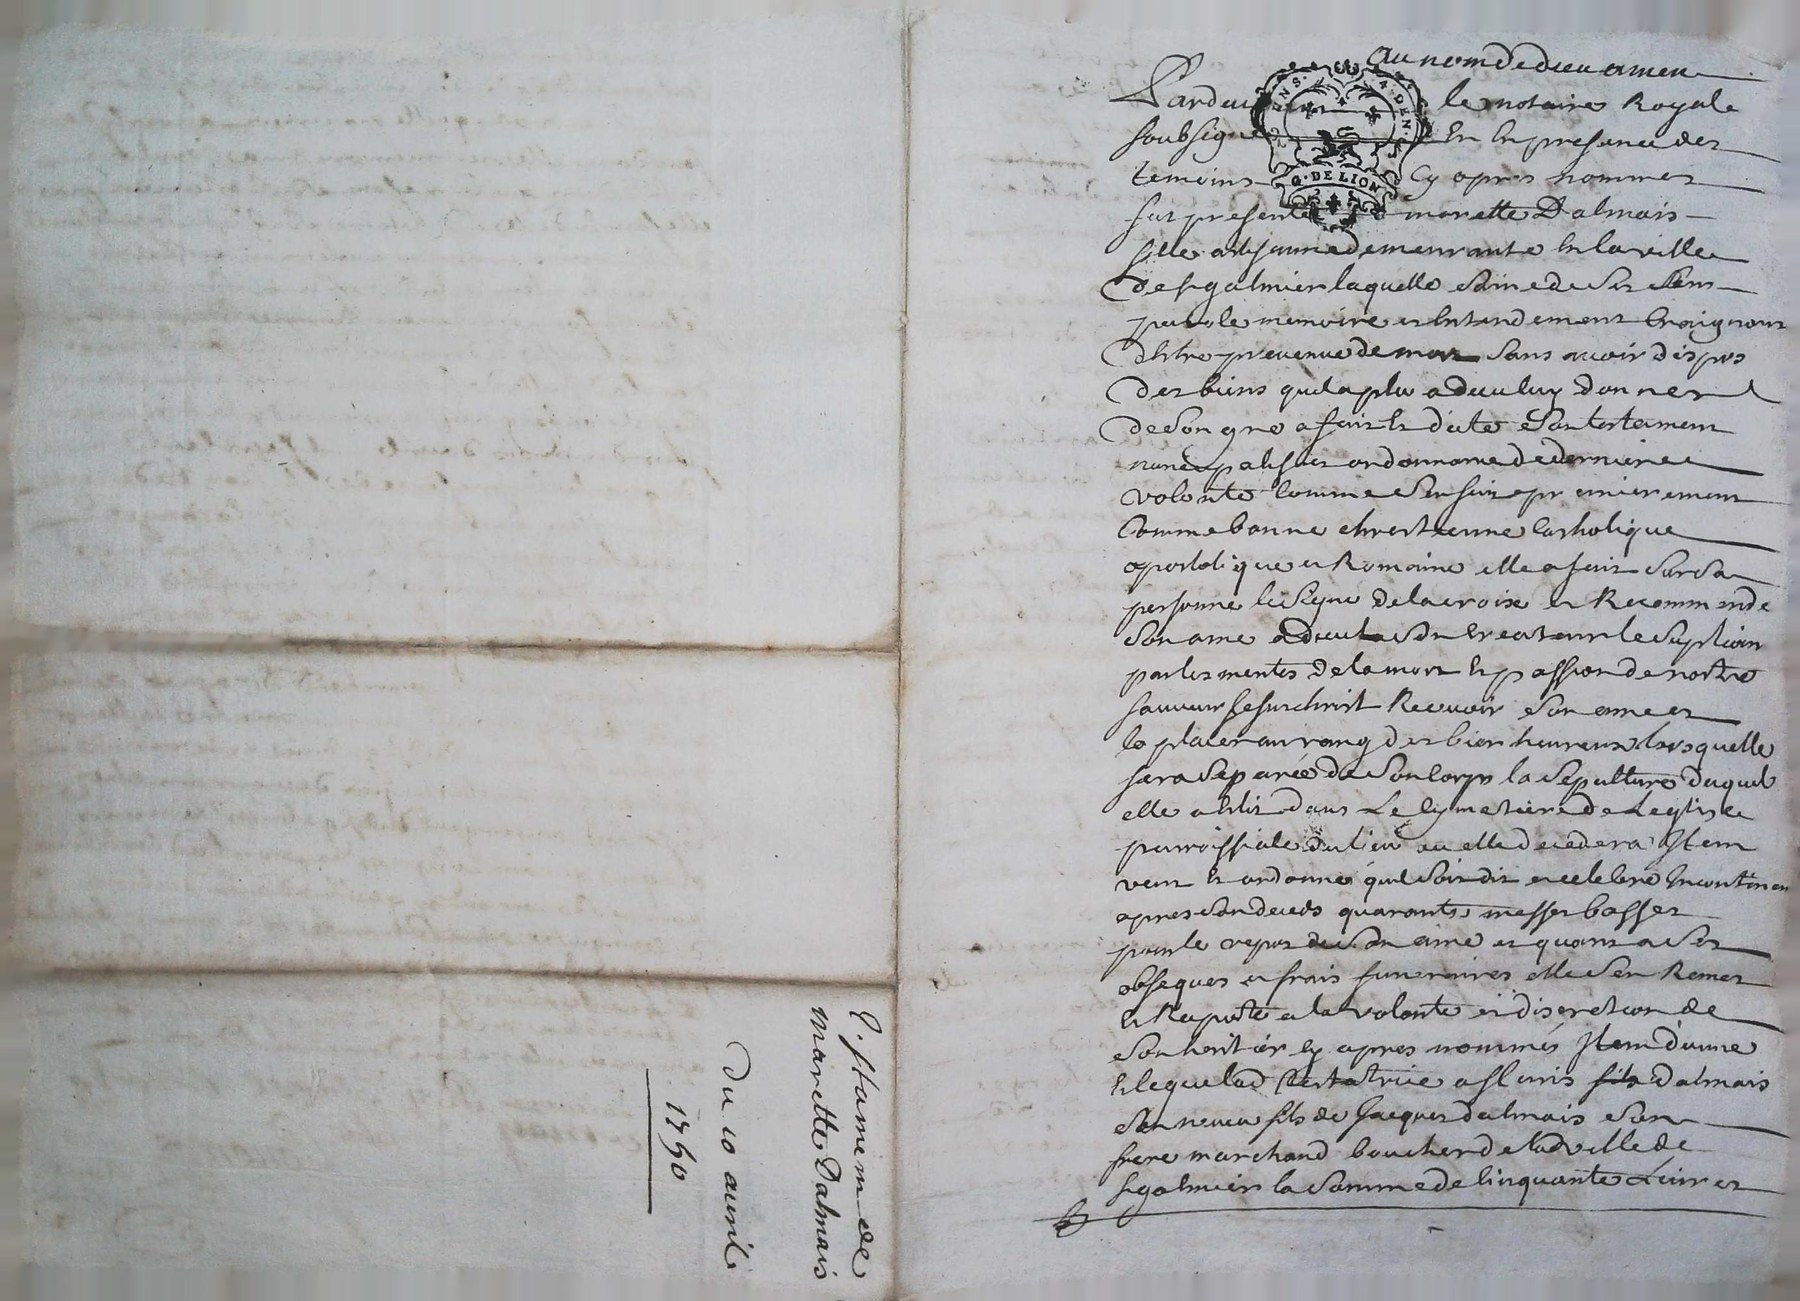 Au nom de dieu amen
Pardeuant le notaire Royale
soubsigné En En presence des
GENS. LA. DEN.
G. DE LION
temoins Cy apres nommes
fut presente marette Dalmais
fille artisanne demeurante En la ville
de sgalmier laquelle saine de ses sens
parole memoire et Entendement Craignant
d'Estre preuenue de mort sans auoir dispos
des biens quil a plu a dieu luy donner
de son gre a fait Et dicté son testament
nuncupatif et ordonnance de derniere
volonté Comme sen suit premierement
Comme bonne chrestienne Catholique
apostolique et Romaine elle a fait sur sa
personne le signe de la croix et Recommende
son ame a dieu son Createur le supliant
par les merites de la mort Et passion de nostre
sauueur Jesus christ Receuoir son ame et
la placer au rang des bien heureux lors quelle
sera separée de son Corps la sepulture duquel
elle a Elit dans Le Cymetiere de Leglise
parroissiale du lieu ou elle decedera Item
veut Et ordonne quil soit dit et celebré Incontinan
apres son deceds quarante messes basses
pour le repos de son ame et quant a ses
obseques et frais funeraires elle sen Remet
Et Raporte a la volonté et discretion de
son heritier Cy apres nommés Item donne
Et legue lad testatrice a Cloris fils Dalmais
son neueu fils de Jacques dalmais son
frere marchand boucher de lad ville de
sgalmier la somme de Cinquante Liures
Testament de
marette Dalmais
du 10 auril
1750